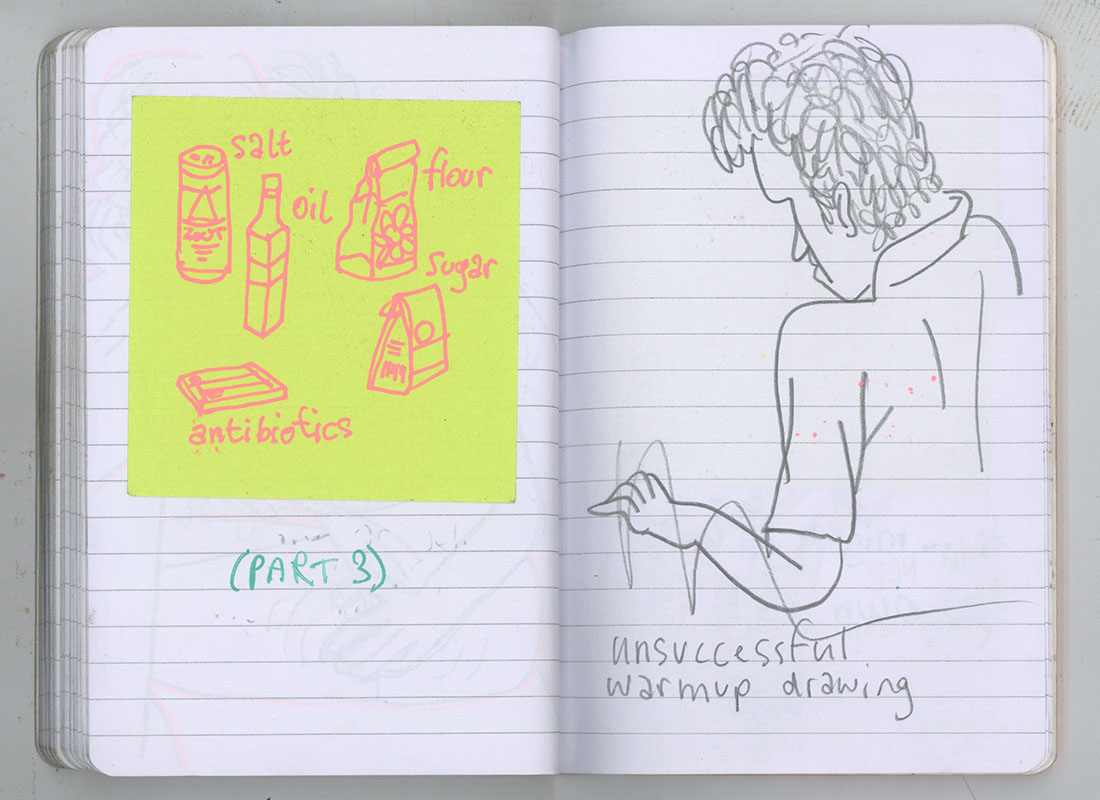 salt
ZOUT
oil
flour
sugar
antibiotics
(PART 3)
unsuccessful
warmup drawing